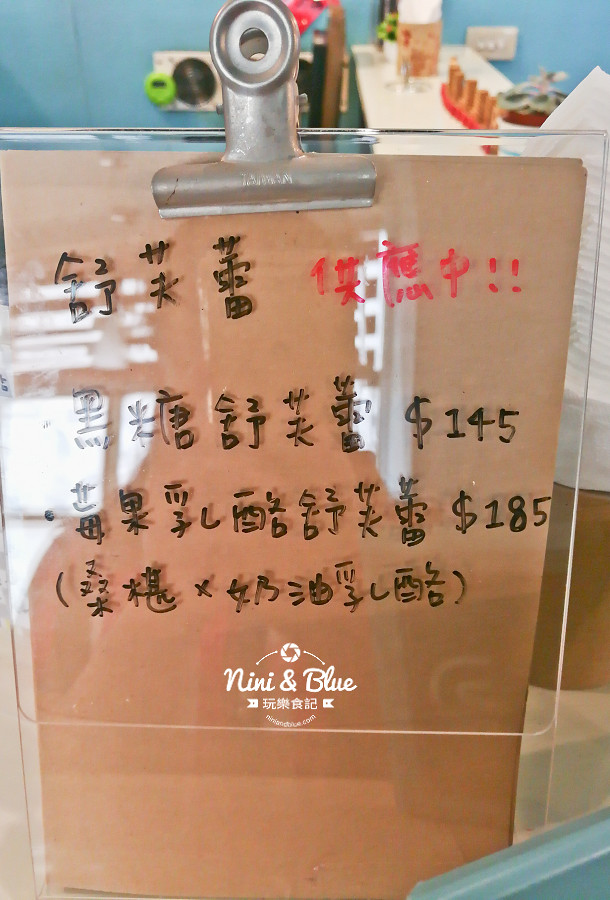 TAIWAN
舒芙蕾 供應中!!
黑糖舒芙蕾 $145
·莓果乳酪舒芙蕾 $185
(桑椹×奶油乳酪)
Nini & Blue
玩樂食記
niniandblue.com